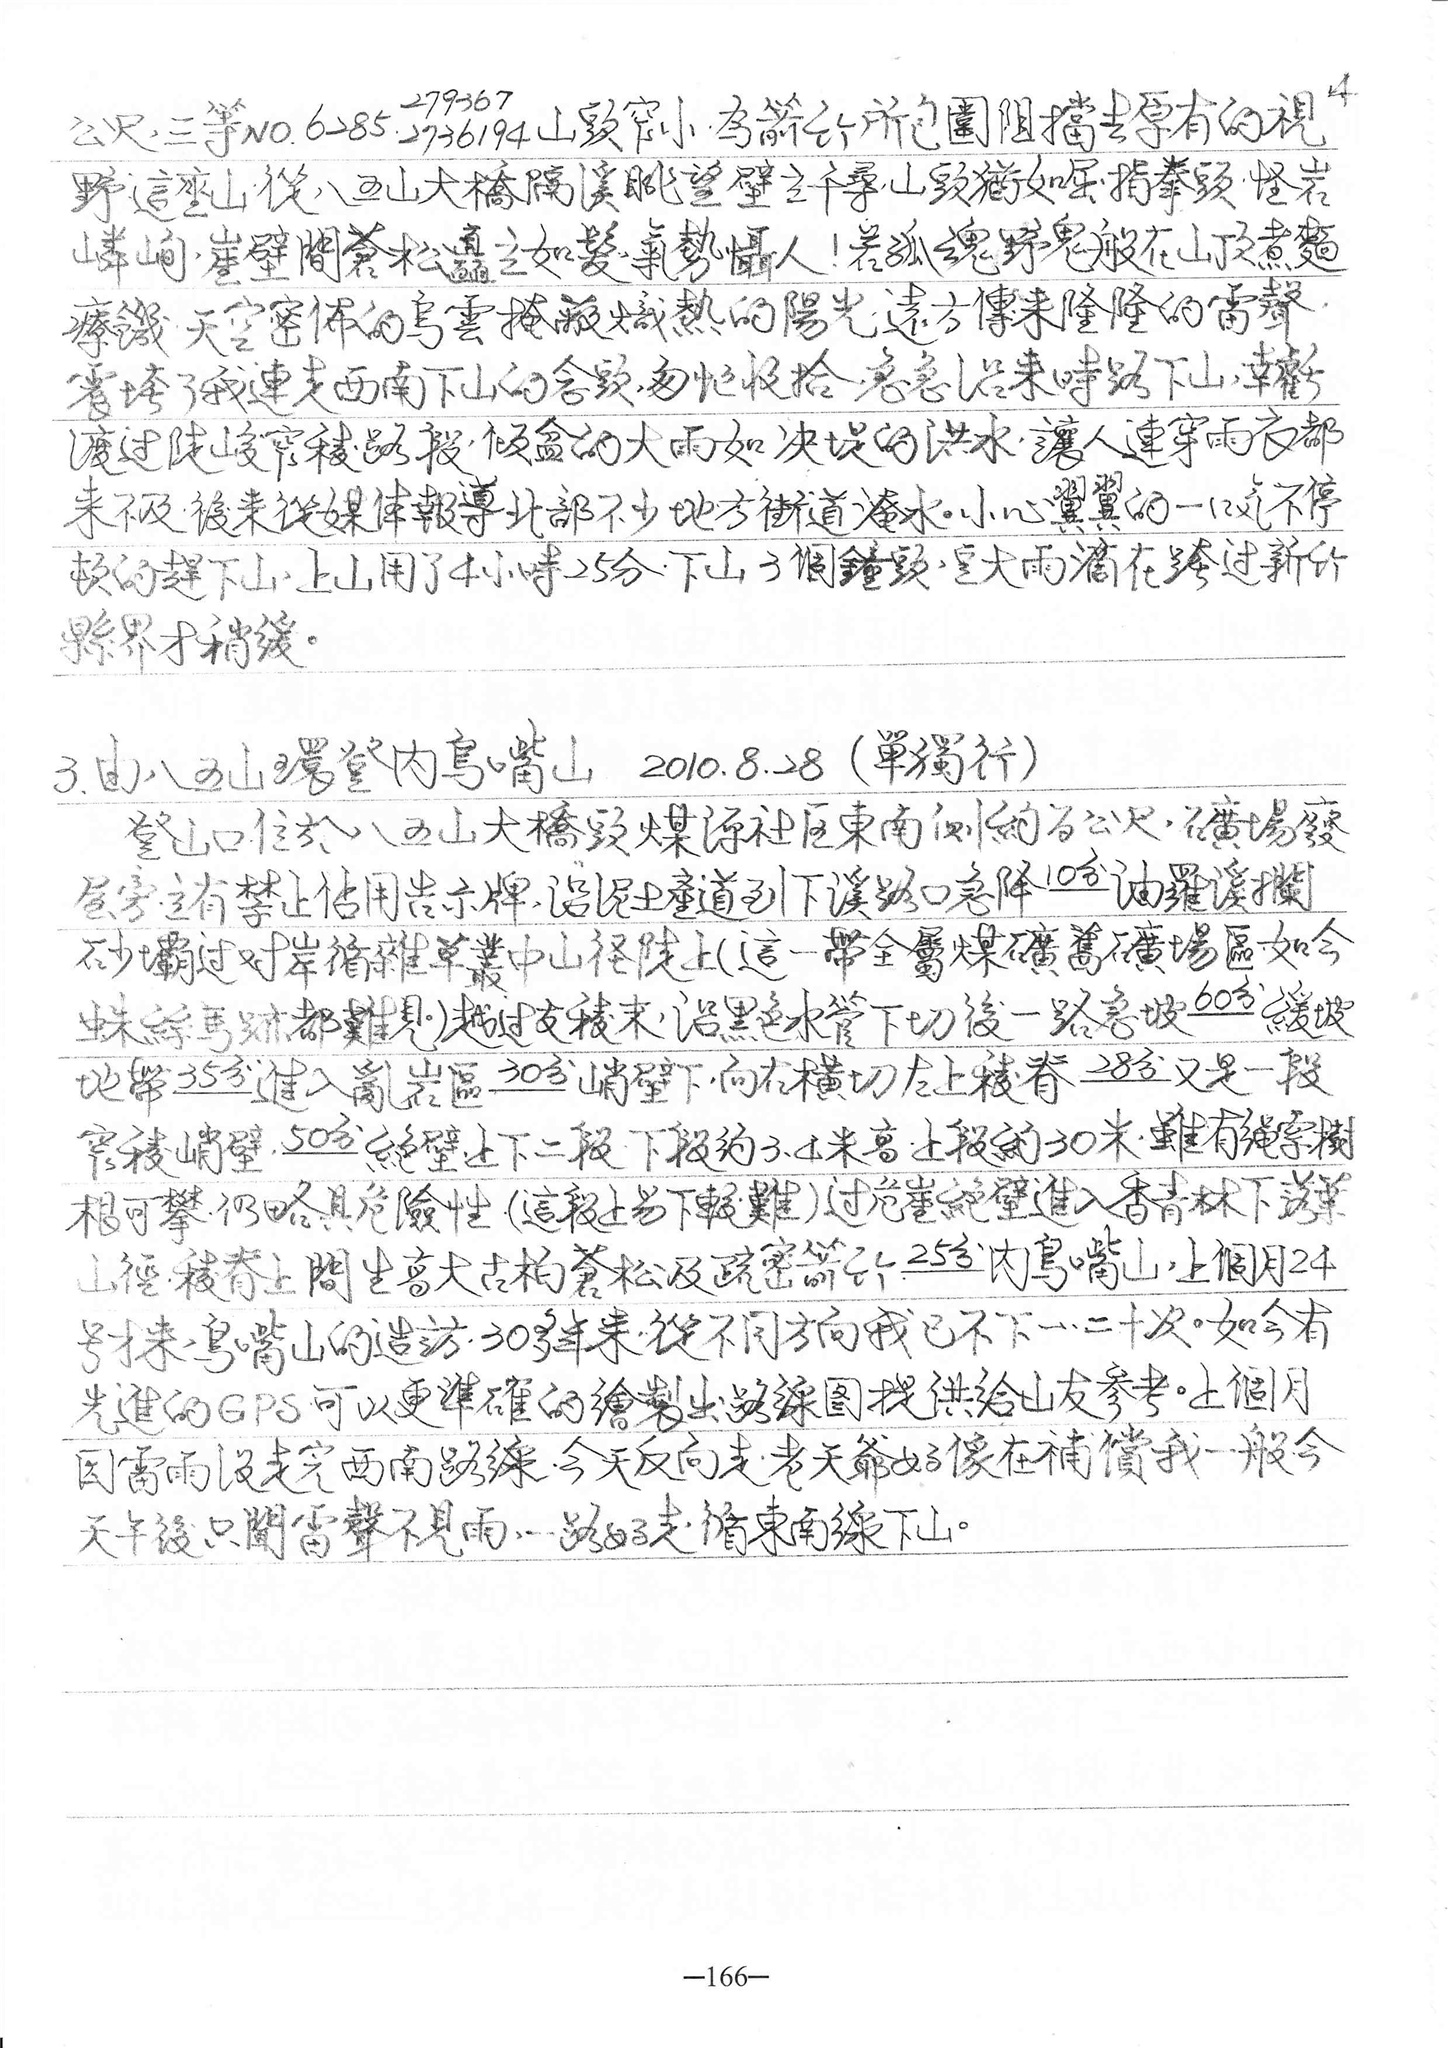 4
公尺,三等NO.6285.279367 2736194山頭窄小.為箭竹所包圍阻擋去原有的視
野.這座山.從八五山大橋隔溪眺望壁立千尋,山頭猶如屈指拳頭.怪岩
嶙峋.崖壁間蒼松矗立如髮.氣勢懾人!若孤魂野鬼般在山頂煮麵
療饑.天空密佈的烏雲掩蔽熾熱的陽光.遠方傳来隆隆的雷聲.
震垮了我連走西南下山的念頭,匆忙收拾.急急沿来時路下山,幸虧
渡过陡峻窄稜路段.傾盆的大雨如决堤的洪水.讓人連穿雨衣都
来不及.後来從媒体報導北部不少地方街道淹水。小心翼翼的一口気不停
頓的趕下山,上山用了4小時25分.下山3個鐘頭,豆大雨滴在跨过新竹
縣界才稍緩。
3.由八五山環登內鳥嘴山 2010.8.28(單獨行)
登山口位於八五山大橋頭煤源社区東南側約百公尺,石礦場發
居旁立有禁止佔用告示牌,沿泥土產道到下溪路口急降10分油羅溪攔
砂壩过对岸循雜草叢中山径陡上(這一帶全屬煤礦舊礦場區.如今
蛛絲馬跡都難見)越过支稜末,沿黑色水管下切後一路急坡60分緩坡
地帶35分進入亂岩區30分峭壁下.向右橫切左上稜脊28分又是一段
窄稜峭壁.50分絕壁上下二段.下段約3.4米高.上段約30米.雖有繩索樹
根可攀.仍略具危險性(這段上易下較難)过危崖絕壁進入香青林下落葉
山徑.稜脊上間生高大古柏蒼松及疏密箭竹.25分內鳥嘴山,上個月24
号才来,鳥嘴山的造訪.30多年来.從不同方向我已不下一.二十次。如今有
先進的GPS可以更準確的繪製出路線图提供給山友參考。上個月
因雷雨没走完西南路線.今天反向走.老天爺好像在補償我一般今
天午後只聞雷聲不見雨,一路好走.循東南線下山。
—166—